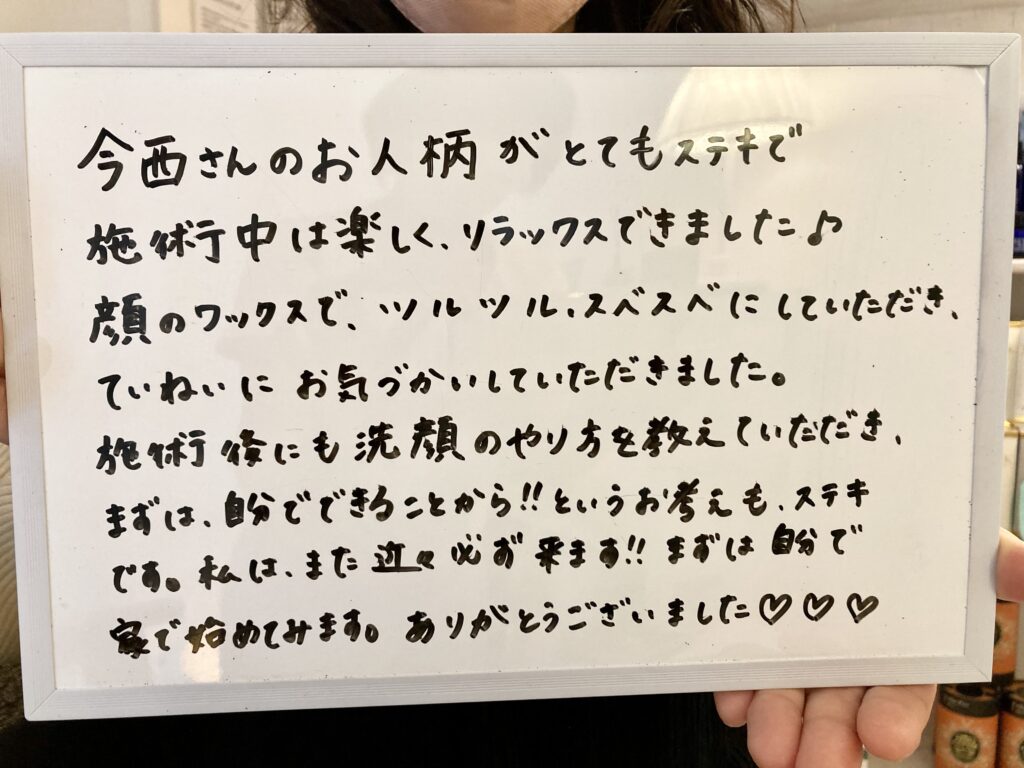 今西さんのお人柄がとてもステキで
施術中は楽しく、リラックスできました♪
顔のワックスで、ツルツル、スベスベにしていただき、
ていねいにお気づかいしていただきました。
施術後にも洗顔のやり方を教えていただき、
まずは、自分でできることから!!というお考えも、ステキ
です。私は、また近々必ず来ます!!まずは自分で
家で始めてみます。ありがとうございました♡♡♡